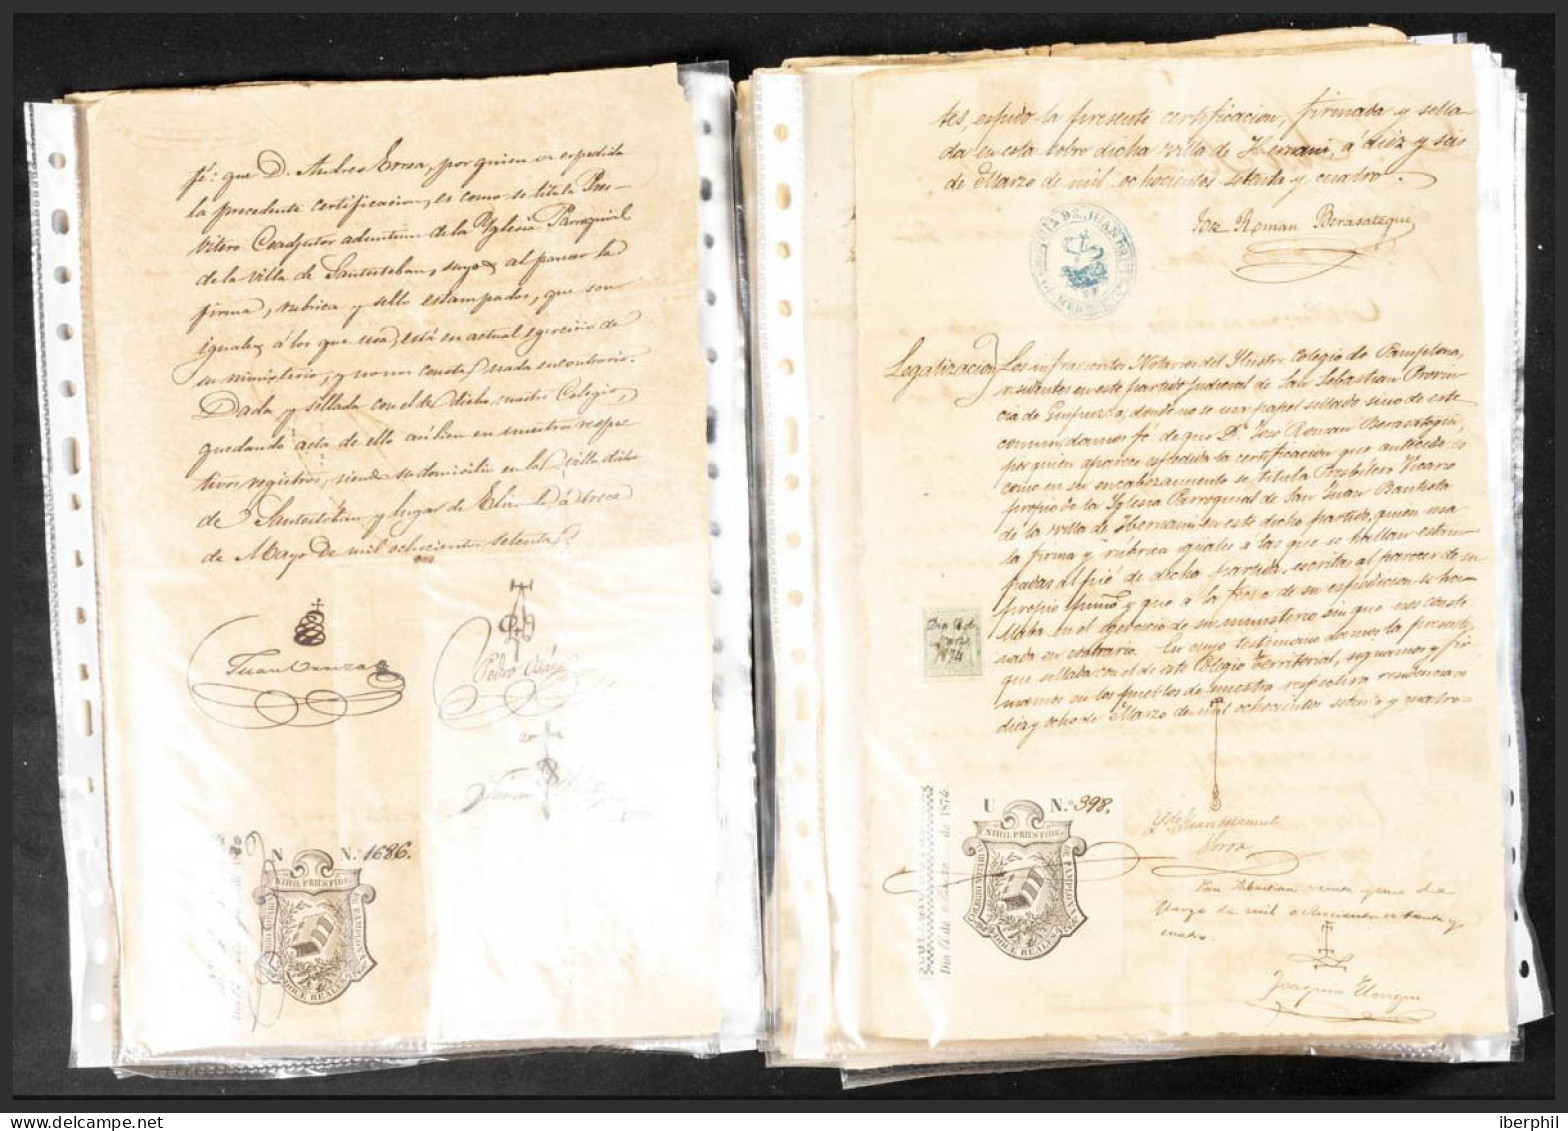 fé: que D. Andres Errea, por quien va espedida
la precedente certificacion, es como se titula Pres-
vitero Coadjutor adnutum de la Yglesia Parroquial
de la villa de Santesteban, suya al parecer la
firma, rubrica y sello estampados, que son
iguales á los que usa, está en actual egercicio de
su ministerio, y no nos consta nada en contrario.
Dada y sellada con el de dicho nuestro Colegio,
quedando acta de ello en nuestros respec
tivos registros, siendo su domicilio en la villa dicha
de Santesteban y lugar de á trece
de Mayo de mil ochocientos setenta
Juan
Pedro
N N.º 1686.
NIHIL PRIUS FIDE
DE PAMPLONA
DOCE REALES
tes, espido la presente certificacion, firmada y sella-
da en esta sobre dicha villa de Hernani, á diez y seis
de Marzo de mil ochocientos setenta y cuatro.
José Roman Berasategui
PARROQUIA DE S. JUAN BAUTISTA
DE HERNANI
Legalizacion) Los infrascritos Notarios del Ilustre Colegio de Pamplona,
residentes en este partido judicial de San Sebastian Provin
cia de Guipuzcoa, donde no se usa papel sellado sino de este
comun, damos fé de que Dn. José Roman Berasategui,
por quien aparece espedida la certificacion que antecede es
como en su encabezamiento se titula Presbitero Vicario
propio de la Iglesia Parroquial de San Juan Bautista
de la villa de Hernani en este dicho partido, quien usa
la firma y rúbrica iguales á las que se hallan estam
padas al pié de dicha partida, escritas al parecer de su
propio puño y que a la fecha de su espedicion se ha-
llaba en el egercicio de su ministerio sin que nos conste
nada en contrario. En cuyo testimonio damos la presente
que sellada con el de este Colegio territorial, signamos y fir
mamos en los pueblos de nuestra respectiva residencia á
diez y ocho de Marzo de mil ochocientos setenta y cuatro-
Dia 18 de
Marzo
1874
U N.º 398.
NIHIL PRIUS FIDE
DE PAMPLONA
DOCE REALES
de 1874
San Sebastian de
Marzo de mil ochocientos setenta y
cuatro.
Joaquin Elosegui
iberphil